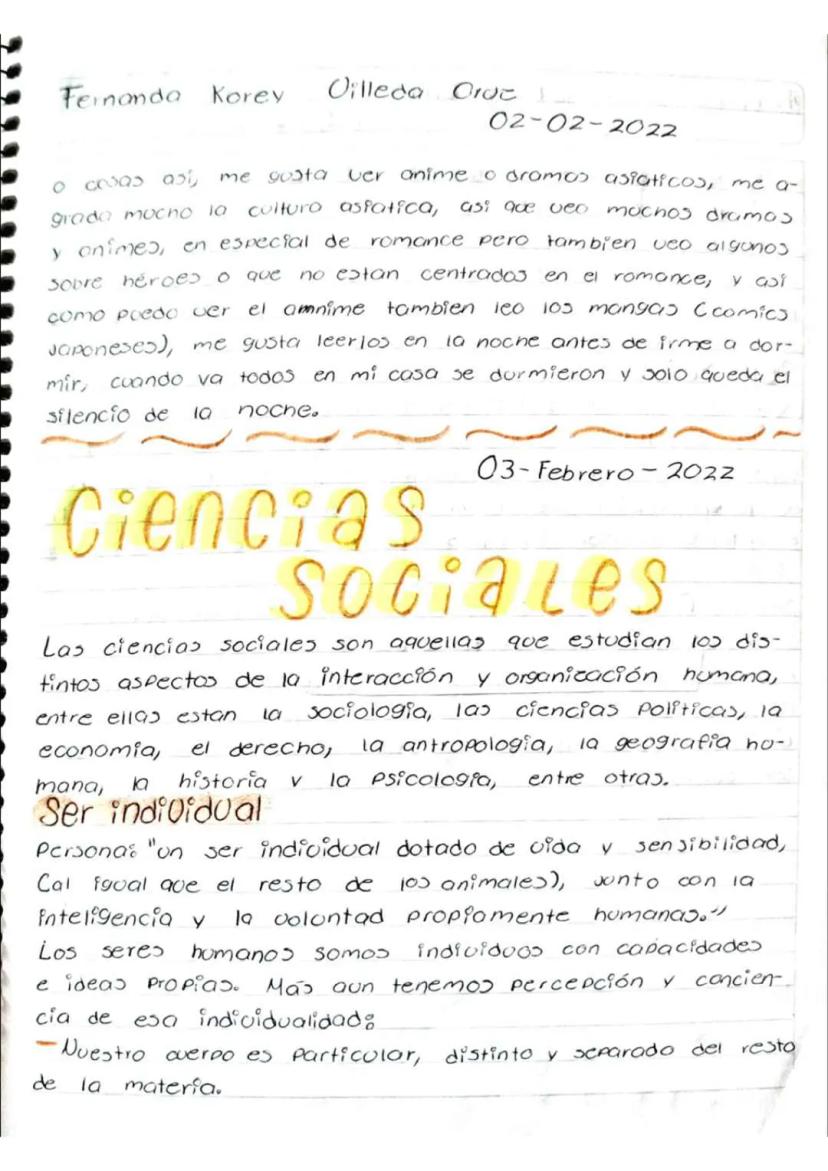 Fernanda Korey Villeda Cruz
02-02-2022
o cosas así, me gusta ver anime o dramas asiaticos, me a-
grada mucho la cultura asiatica, así que veo muchos dramas
y animes, en especial de romance pero tambien veo algunos
sobre héroes o que no estan centrados en el romance, y así
como puedo ver el amnime tambien leo los mangas (comics
Japoneses), me gusta leerlos en la noche antes de irme a dor-
mir, cuando ya todos en mi casa se durmieron y solo queda el
silencio de la noche.
03-Febrero-2022
Ciencias
sociales
Las ciencias sociales son aquellas que estudian los dis-
tintos aspectos de la interacción y organización humana,
entre ellas estan la sociología, las ciencias políticas, la
economía, el derecho, la antropología, la geografía hu-
mana, la historia y la psicología, entre otras.
Ser individual
Persona: "un ser individual dotado de vida y sensibilidad,
(al igual que el resto de los animales), junto con la
inteligencia y la voluntad propiamente humanas."
Los seres humanos somos individuos con capacidades
e ideas propias. Más aun tenemos percepción y concien-
cia de esa individualidad:
-Nuestro cuerpo es particular, distinto y separado del resto
de la materia.